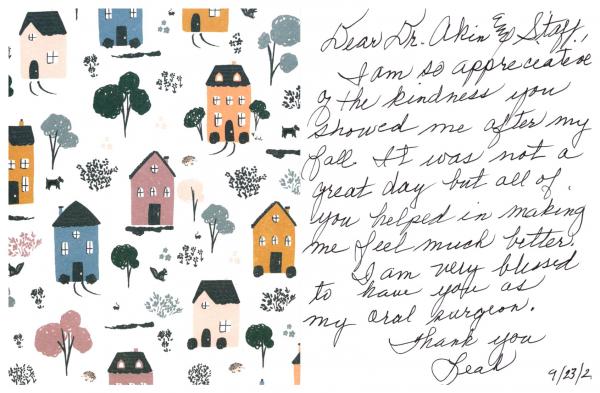 Dear Dr. Akin & Staff,
I am so appreciative
of the kindness you
showed me after my
fall. It was not a
great day but all of
you helped in making
me feel much better.
I am very blessed
to have you as
my oral surgeon.
Thank you
Leah
9/23/2